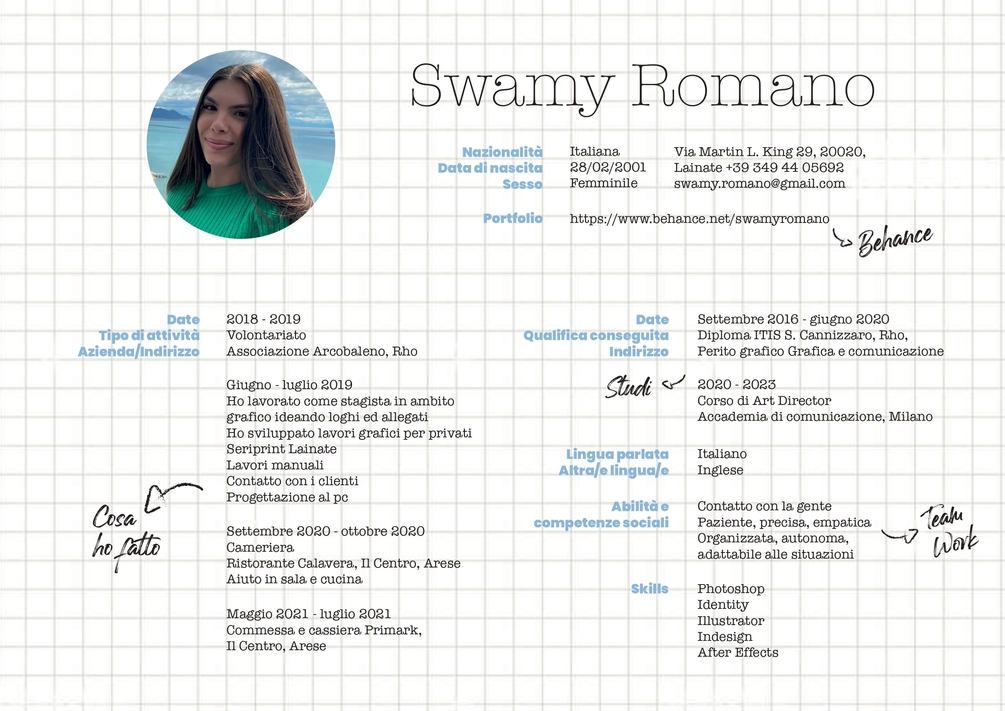 Swamy Romano
Nazionalità Italiana
Data di nascita 28/02/2001
Sesso Femminile
Via Martin L. King 29, 20020,
Lainate +39 349 44 05692
swamy.romano@gmail.com
Portfolio https://www.behance.net/swamyromano
Behance
Date 2018 - 2019
Tipo di attività Volontariato
Azienda/Indirizzo Associazione Arcobaleno, Rho
Giugno - luglio 2019
Ho lavorato come stagista in ambito
grafico ideando loghi ed allegati
Ho sviluppato lavori grafici per privati
Seriprint Lainate
Lavori manuali
Contatto con i clienti
Progettazione al pc
Cosa
ho fatto
Settembre 2020 - ottobre 2020
Cameriera
Ristorante Calavera, Il Centro, Arese
Aiuto in sala e cucina
Maggio 2021 - luglio 2021
Commessa e cassiera Primark,
Il Centro, Arese
Date Settembre 2016 - giugno 2020
Qualifica conseguita Diploma ITIS S. Cannizzaro, Rho,
Indirizzo Perito grafico Grafica e comunicazione
Studi
2020 - 2023
Corso di Art Director
Accademia di comunicazione, Milano
Lingua parlata Italiano
Altra/e lingua/e Inglese
Abilità e Contatto con la gente
competenze sociali Paziente, precisa, empatica
Organizzata, autonoma,
adattabile alle situazioni
Team
Work
Skills Photoshop
Identity
Illustrator
Indesign
After Effects